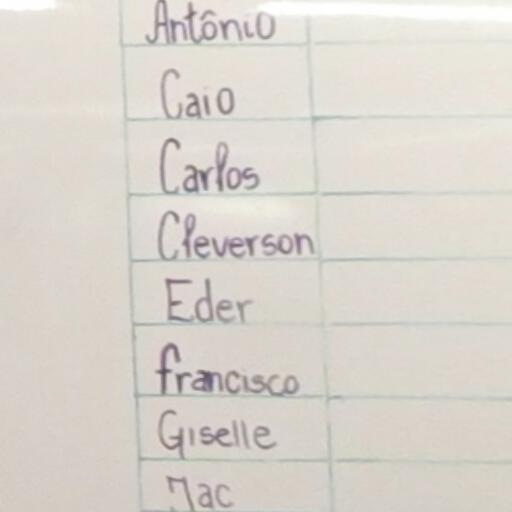 Antônio
Caio
Carlos
Cleverson
Eder
francisco
Giselle